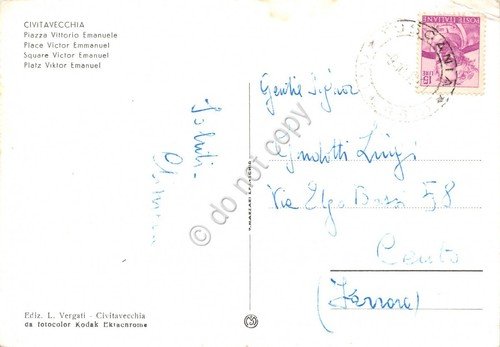 CIVITAVECCHIA
Piazza Vittorio Emanuele
Place Victor Emmanuel
Square Victor Emanuel
Platz Viktor Emanuel
Saluti
Gentil Signor
Guidotti Luigi
Via Ugo Bassi 58
Cento
(Ferrara)
POSTE ITALIANE
LIRE 15
TUSCANIA
© do not copy
Ediz. L. Vergati - Civitavecchia
da fotocolor Kodak Ektachrome